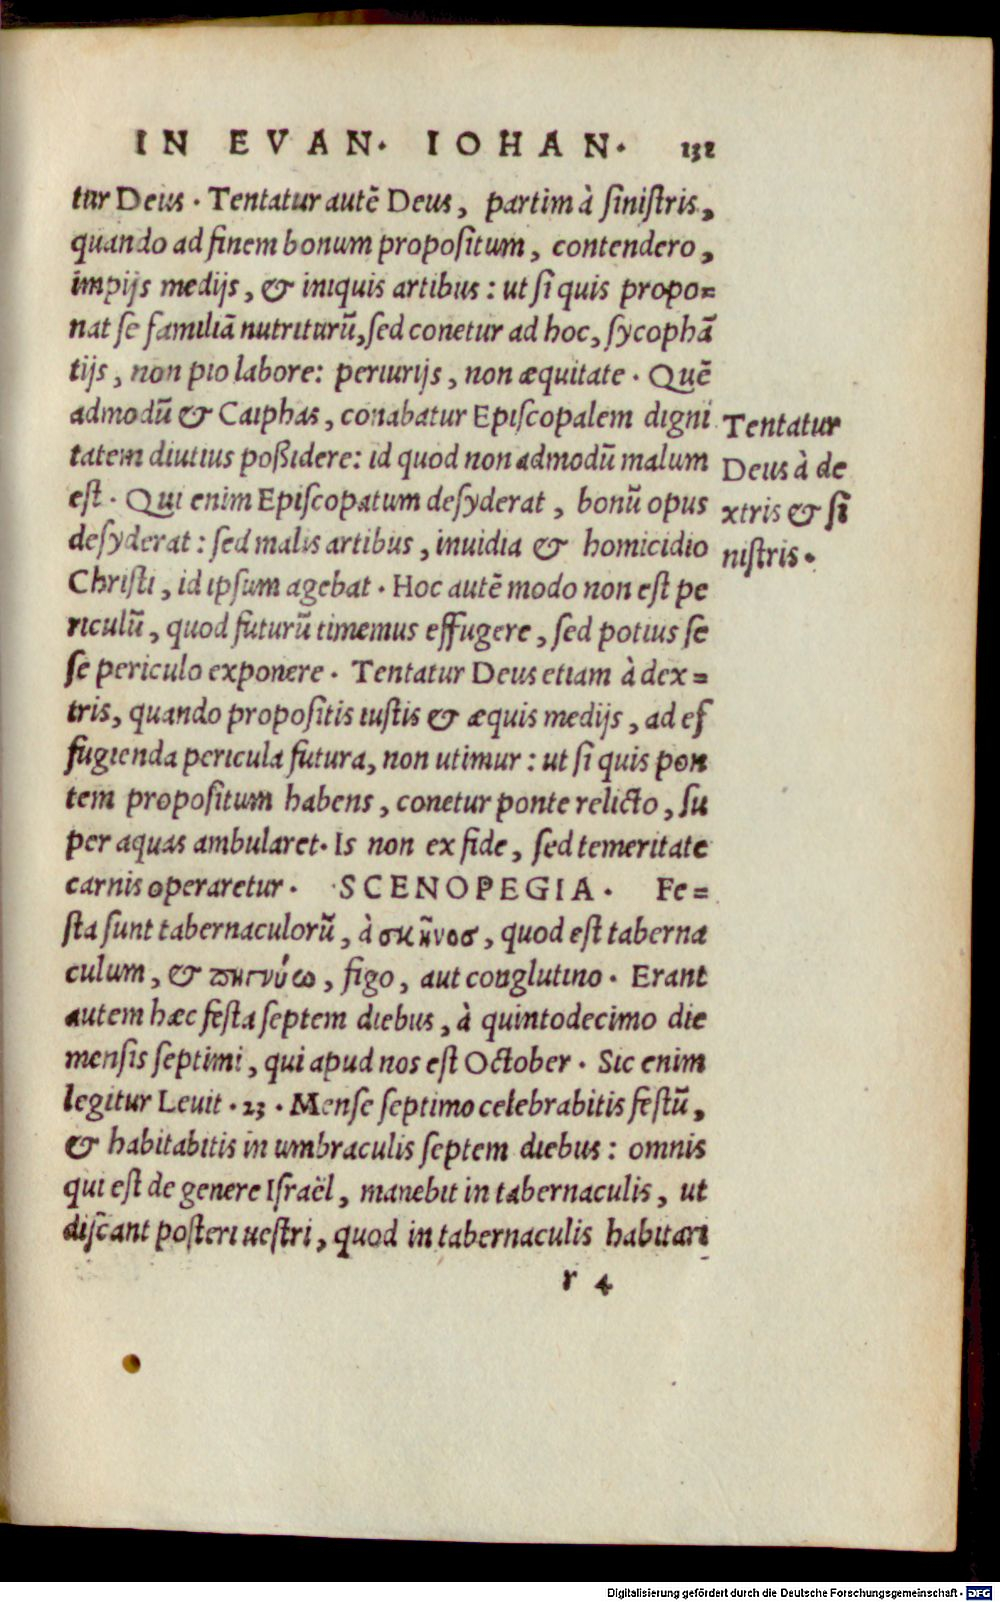 IN EVAN. IOHAN. 132
tur Deus. Tentatur autē Deus, partim à sinistris,
quando ad finem bonum propositum, contendero,
impijs medijs, & iniquis artibus: ut si quis propo=
nat se familiā nutriturū, sed conetur ad hoc, sycophā
tijs, non pio labore: periurijs, non æquitate. Quē
admodū & Caiphas, conabatur Episcopalem digni
tatem diutius poßidere: id quod non admodū malum
est. Qui enim Episcopatum desyderat, bonū opus
desyderat: sed malis artibus, inuidia & homicidio
Christi, id ipsum agebat. Hoc autē modo non est pe
riculū, quod futurū timemus effugere, sed potius se
se periculo exponere. Tentatur Deus etiam à dex=
tris, quando propositis iustis & æquis medijs, ad ef
fugienda pericula futura, non utimur: ut si quis pon
tem propositum habens, conetur ponte relicto, su
per aquas ambularet. Is non ex fide, sed temeritate
carnis operaretur. SCENOPEGIA. Fe=
sta sunt tabernaculorū, à σκῆνοσ, quod est taberna
culum, & πηγνύω, figo, aut conglutino. Erant
autem hæc festa septem diebus, à quintodecimo die
mensis septimi, qui apud nos est October. Sic enim
legitur Leuit. 23. Mense septimo celebrabitis festū,
& habitabitis in umbraculis septem diebus: omnis
qui est de genere Israël, manebit in tabernaculis, ut
discant posteri uestri, quod in tabernaculis habitari
r 4
Tentatur
Deus à de
xtris & si
nistris.
Digitalisierung gefördert durch die Deutsche Forschungsgemeinschaft - DFG